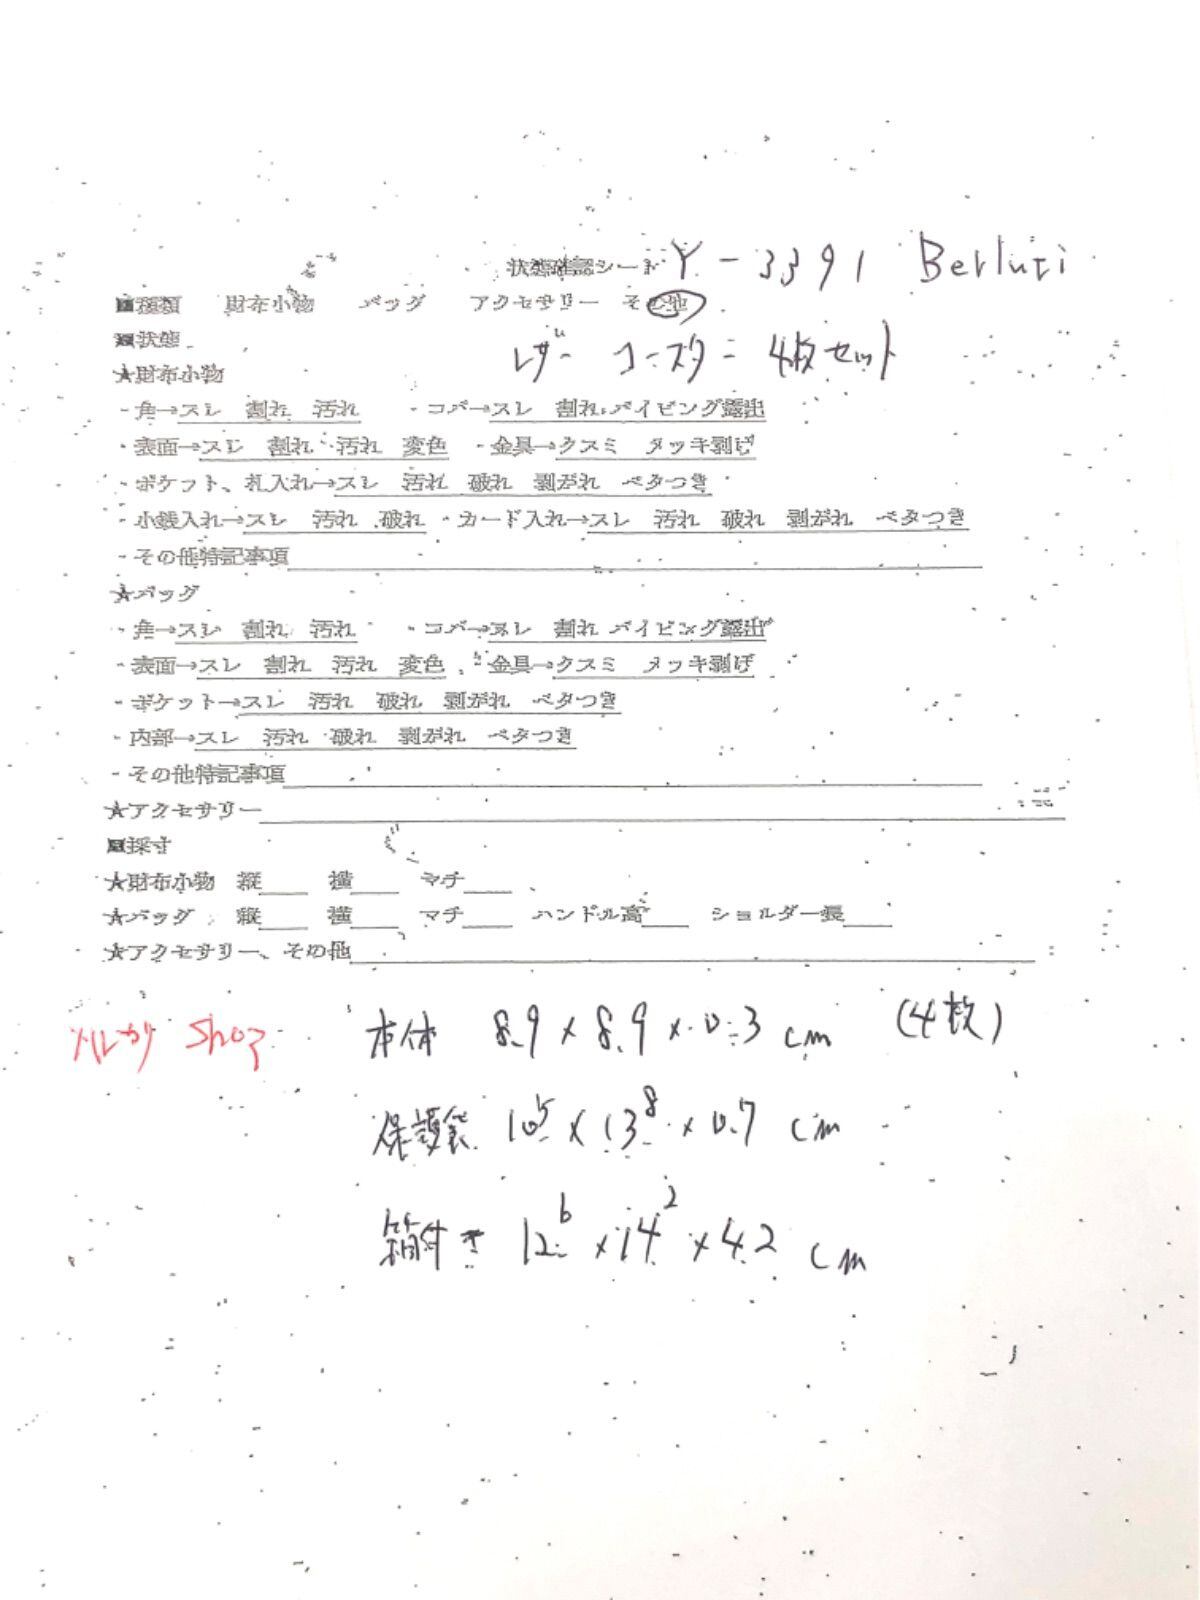 状態確認シート Y-3391 Berluti
■種類 財布小物 バッグ アクセサリー その他
■状態 レザー コースター 4枚セット
★財布小物
・角→スレ 割れ 汚れ ・コバ→スレ 割れ パイピング露出
・表面→スレ 割れ 汚れ 変色 ・金具→クスミ メッキ剥げ
・ポケット、札入れ→スレ 汚れ 破れ 剥がれ ベタつき
・小銭入れ→スレ 汚れ 破れ ・カード入れ→スレ 汚れ 破れ 剥がれ ベタつき
・その他特記事項
★バッグ
・角→スレ 割れ 汚れ ・コバ→スレ 割れ パイピング露出
・表面→スレ 割れ 汚れ 変色 ・金具→クスミ メッキ剥げ
・ポケット→スレ 汚れ 破れ 剥がれ ベタつき
・内部→スレ 汚れ 破れ 剥がれ ベタつき
・その他特記事項
★アクセサリー
■採寸
★財布小物 縦 横 マチ
★バッグ 縦 横 マチ ハンドル高 ショルダー長
★アクセサリー、その他
メルカリ Shop 本体 8.9×8.9×0.3cm (4枚)
保護袋 10.5×13.8×0.7cm
箱付き 12.6×14.2×4.2cm